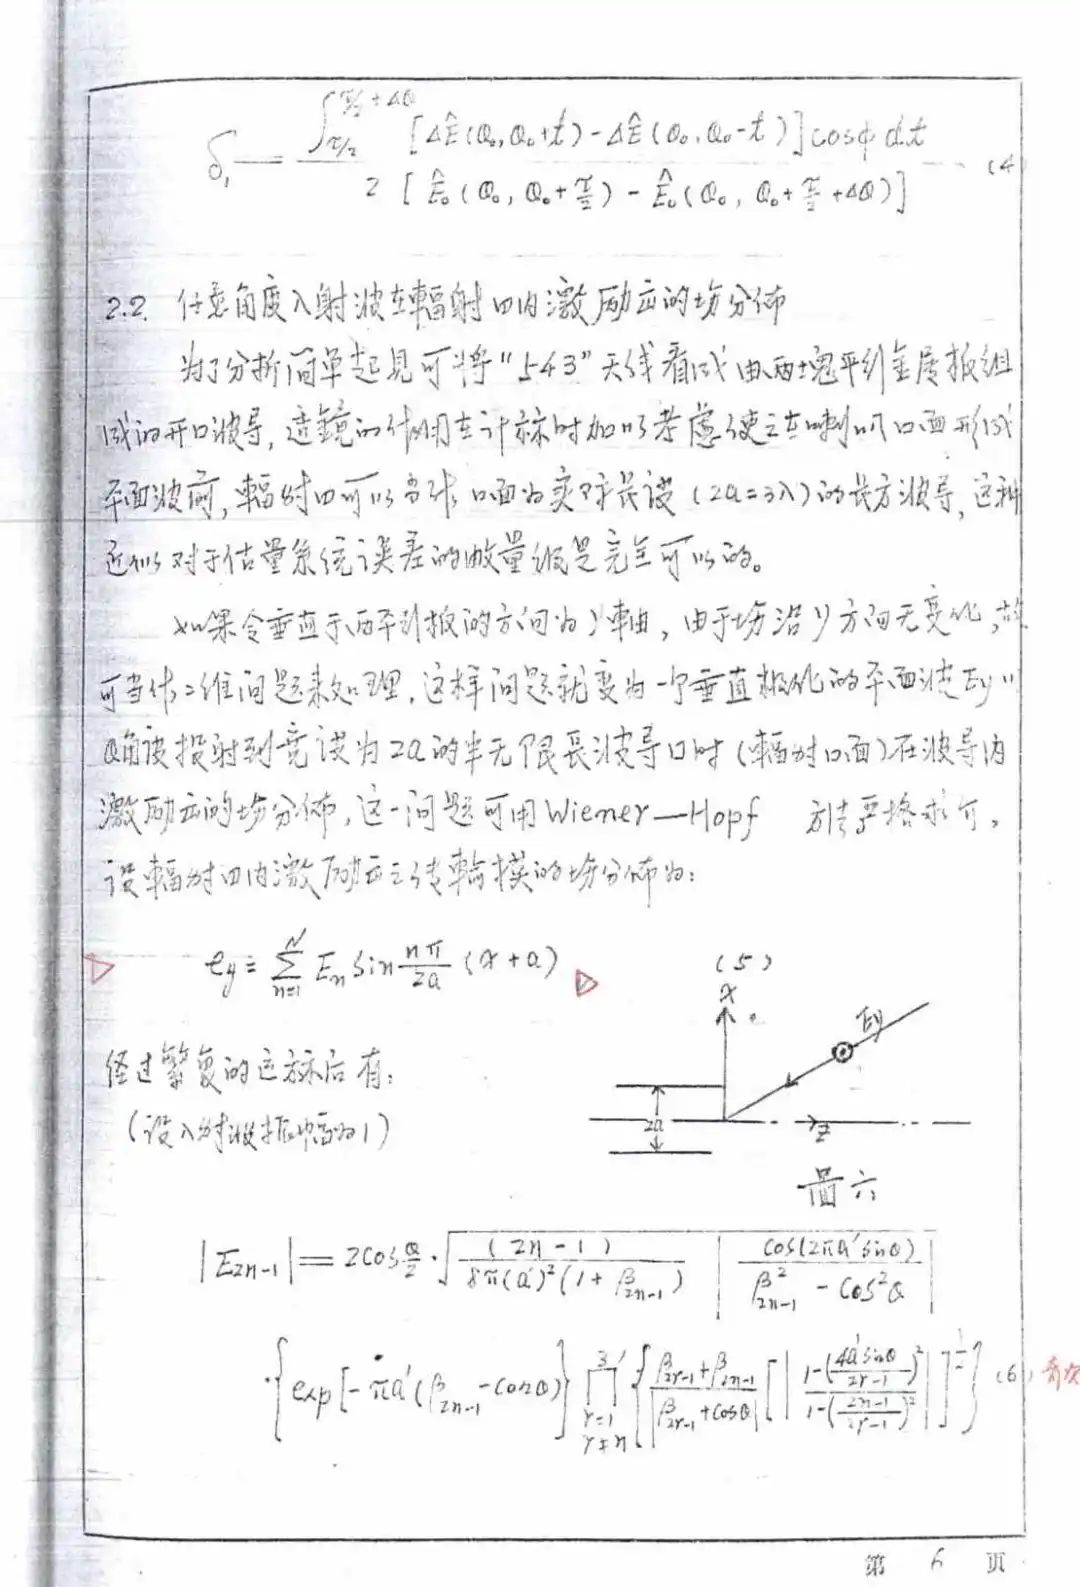 δ₁ = ∫_{π/2}^{π/2+ΔQ} [ΔÊ(Q₀,Q₀+t) - ΔÊ(Q₀,Q₀-t)] cosφ dt / 2[Ê₀(Q₀, Q₀+π/2) - Ê₀(Q₀, Q₀+π/2+ΔQ)] … (4
2.2. 任意角度入射波在辐射口内激励出的场分佈
为了分析简单起见可将"543"天线看成由两块平行金属板组
成的开口波导, 透镜的作用在计算时加以考虑使之在喇叭口面形成
平面波前, 辐射口可以当作口面为 (2a=3λ)的长方波导, 这种
近似对于估量系统误差的数量级是完全可以的。
如果令垂直于两平行板的方向为y轴, 由于场沿y方向无变化, 故
可当作二维问题来处理, 这样问题就变为一个垂直极化的平面波Ey以
Q角度投射到宽度为2a的半无限长波导口时(辐射口面)在波导内
激励出的场分佈, 这一问题可用Wiener—Hopf 方法严格求介。
设辐射口内激励出之传输模的场分佈为:
e_y = ∑_{n=1}^{N} E_n Sin nπ/2a (x+a) (5)
x
Ey
经过繁复的运算后有:
(设入射波振幅为1)
2a
z
图六
|E_{2n-1}| = 2cos Q/2 · √((2n-1) / 8π(a')²(1+β_{2n-1})) |cos(2πa'sinθ) / (β²_{2n-1} - cos²Q)|
· {exp[-πa'(β_{2n-1} - cosθ)} ∏_{r=1, r≠n}^{3'} {(β_{2r-1}+β_{2n-1}) / |β_{2r-1}+cosθ| [|(1-(4a'sinθ/2r-1)²) / (1-(2n-1/2r-1)²)|]^{1/2}} (6) 奇次
第 6 页